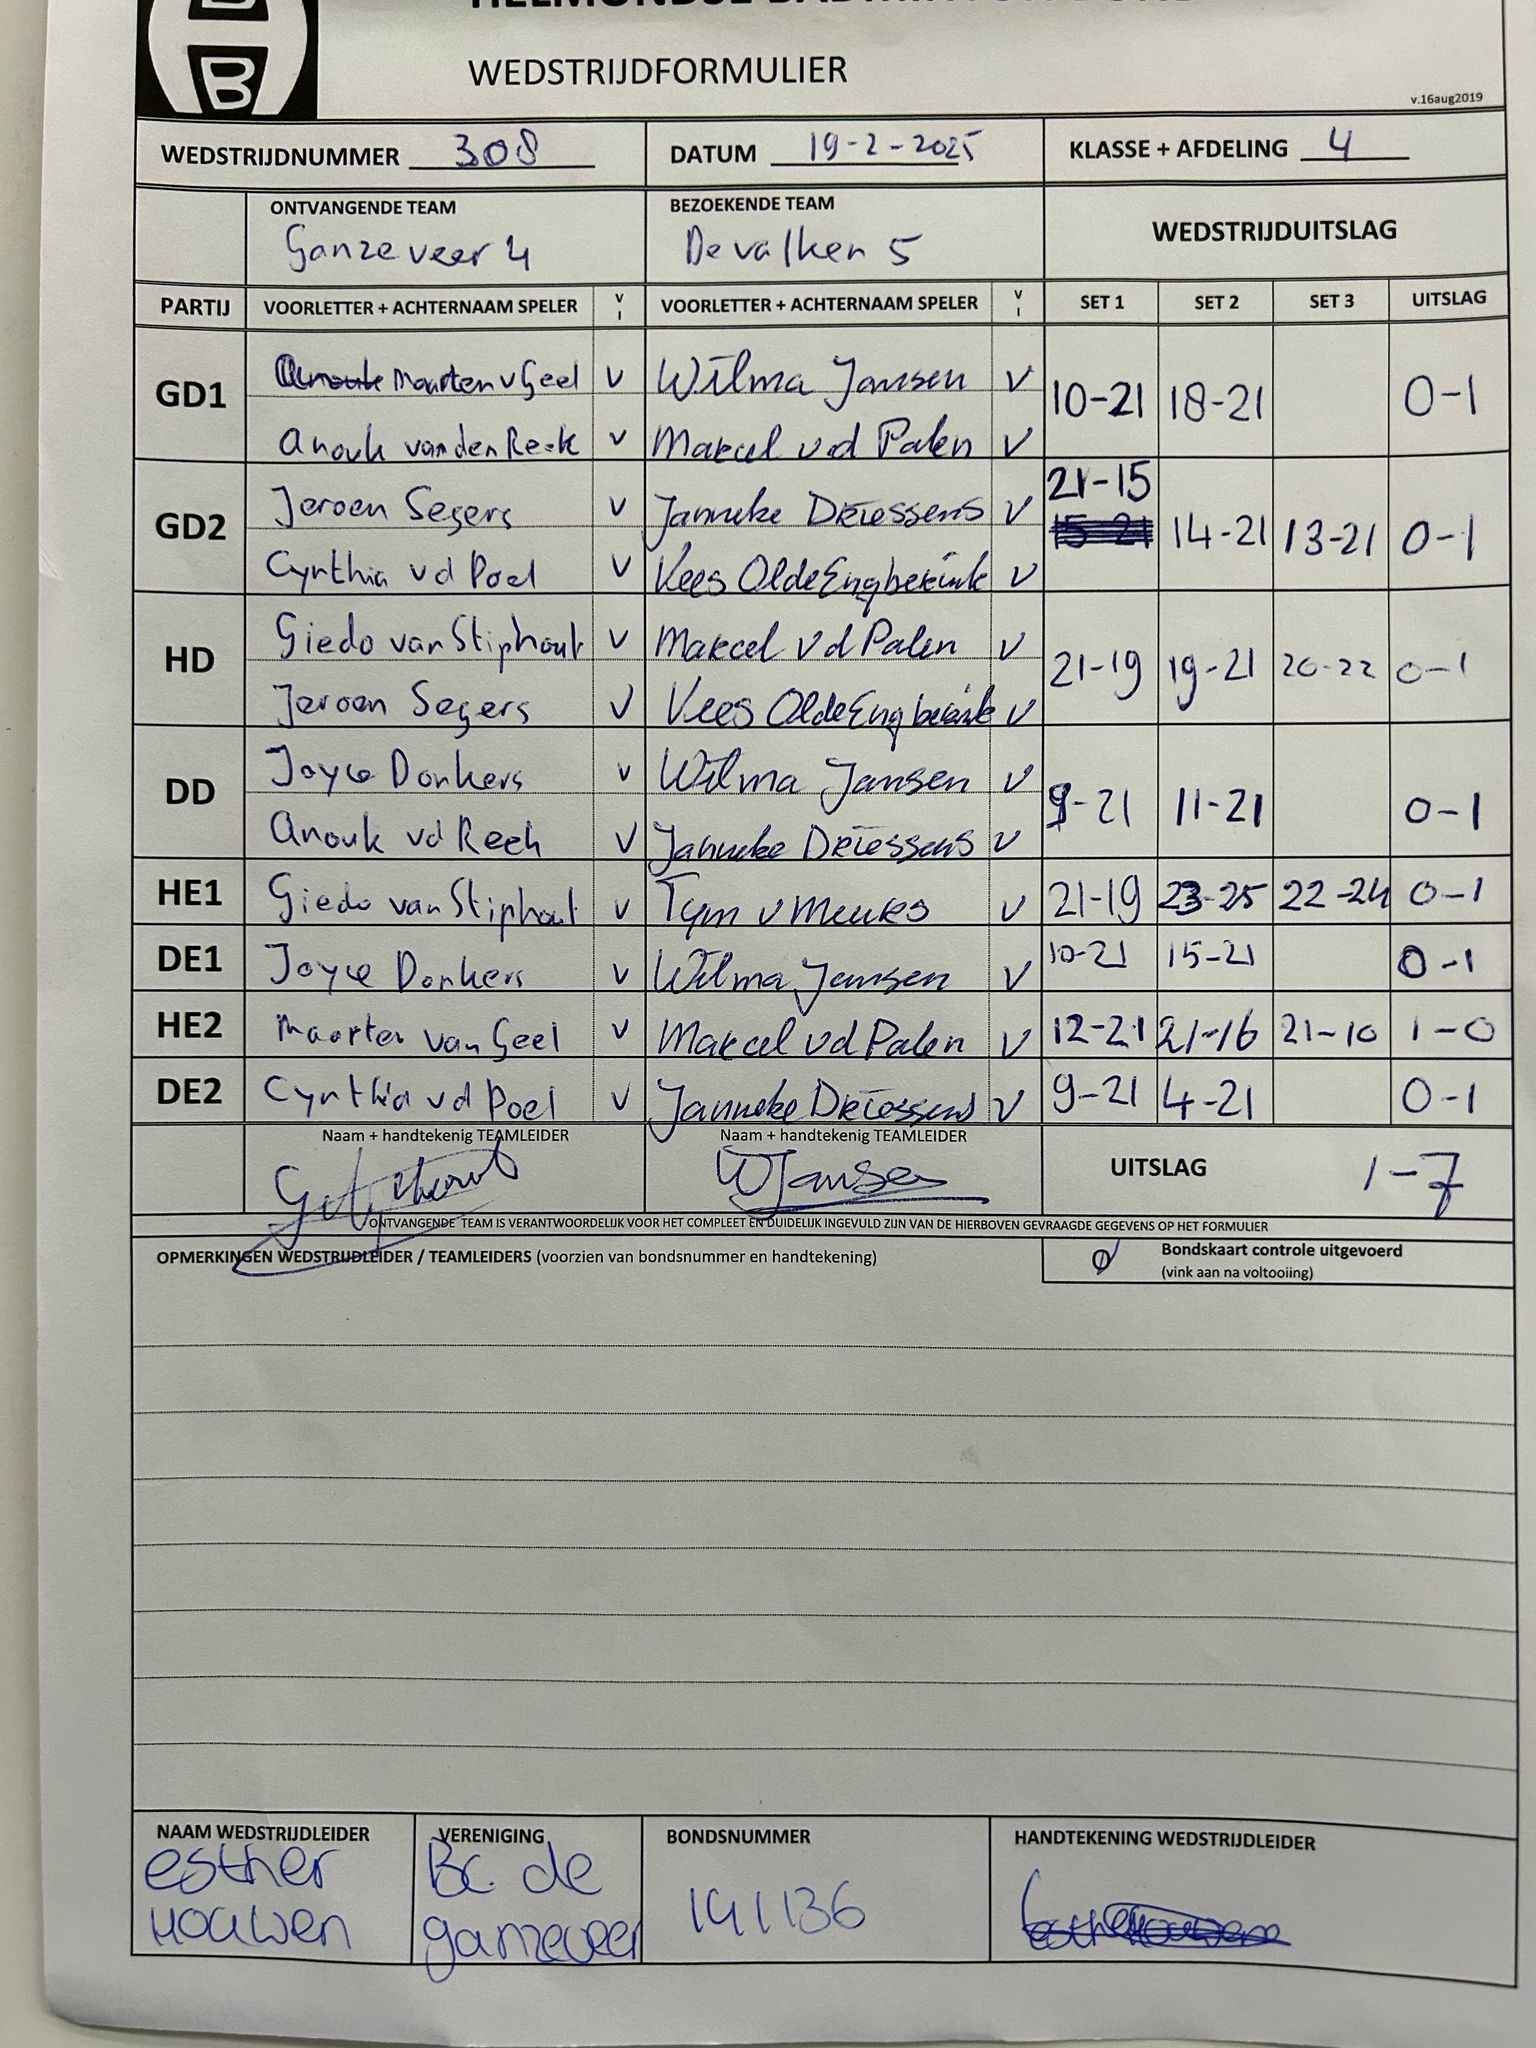 WEDSTRIJDFORMULIER
v.16aug2019
WEDSTRIJDNUMMER 308 DATUM 19-2-2025 KLASSE + AFDELING 4
ONTVANGENDE TEAM BEZOEKENDE TEAM WEDSTRIJDUITSLAG
Ganzeveer 4 De valken 5
PARTIJ VOORLETTER + ACHTERNAAM SPELER V I VOORLETTER + ACHTERNAAM SPELER V I SET 1 SET 2 SET 3 UITSLAG
GD1 Maarten v Geel V Wilma Jansen V 10-21 18-21 0-1
Anouk van den Reek V Marcel v.d Palen V
GD2 Jeroen Segers V Janneke Driessens V 21-15 14-21 13-21 0-1
Cynthia v d Poel V Kees Olde Engberink V
HD Giedo van Stiphout V Marcel v d Palen V 21-19 19-21 20-22 0-1
Jeroen Segers V Kees Olde Engberink V
DD Joyce Donkers V Wilma Jansen V 9-21 11-21 0-1
Anouk vd Reek V Janneke Driessens V
HE1 Giedo van Stiphout V Tym v Meurs V 21-19 23-25 22-24 0-1
DE1 Joyce Donkers V Wilma Jansen V 10-21 15-21 0-1
HE2 Maarten van Geel V Marcel v d Palen V 12-21 21-16 21-10 1-0
DE2 Cynthia v d Poel V Janneke Driessens V 9-21 4-21 0-1
Naam + handtekenig TEAMLEIDER Naam + handtekenig TEAMLEIDER
WJansen UITSLAG 1-7
ONTVANGENDE TEAM IS VERANTWOORDELIJK VOOR HET COMPLEET EN DUIDELIJK INGEVULD ZIJN VAN DE HIERBOVEN GEVRAAGDE GEGEVENS OP HET FORMULIER
OPMERKINGEN WEDSTRIJDLEIDER / TEAMLEIDERS (voorzien van bondsnummer en handtekening) Bondskaart controle uitgevoerd
(vink aan na voltooiing)
NAAM WEDSTRIJDLEIDER VERENIGING BONDSNUMMER HANDTEKENING WEDSTRIJDLEIDER
esther Bc. de
Houwen ganzeveer 141136